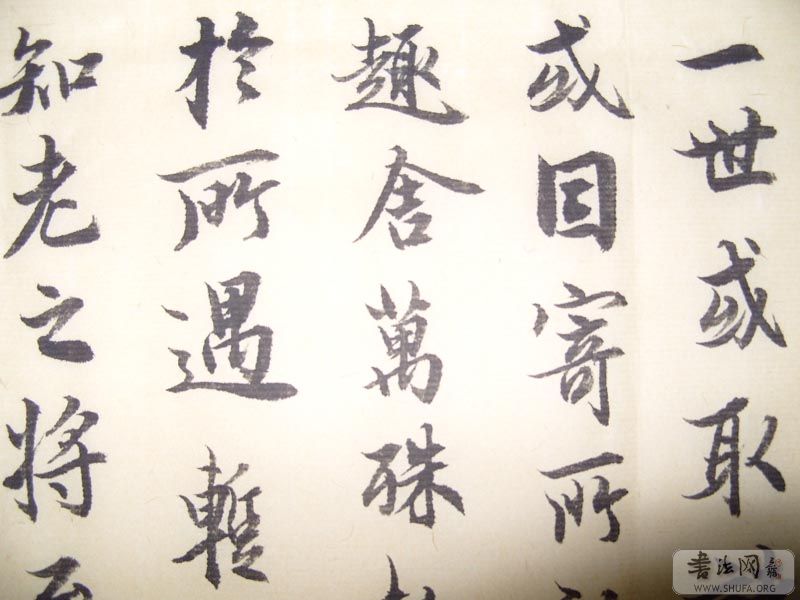 一世或取
或因寄所
趣舍萬殊
於所遇暫
知老之將至
書法网
WWW.SHUFA.ORG